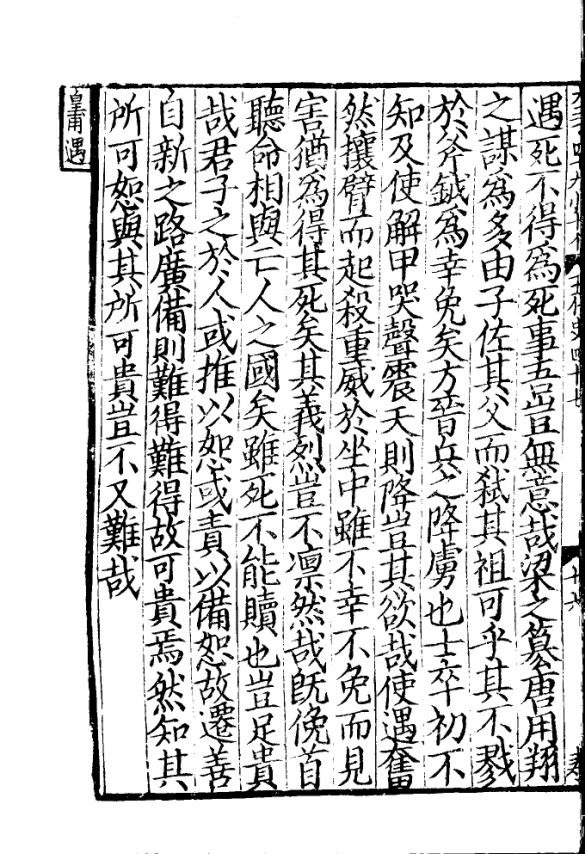 遇死不得為死事吾豈無意哉梁之篡唐用翔
之謀為多由子佐其父而弒其祖可乎其不戮
於斧鉞為幸免矣方晉兵之降虜也士卒初不
知及使解甲哭聲震天則降豈其欲哉使遇奮
然攘臂而起殺重威於坐中雖不幸不免而見
害猶為得其死矣其義烈豈不凛然哉旣俛首
聽命相與亡人之國矣雖死不能贖也豈足貴
哉君子之於人或推以恕或責以備恕故遷善
自新之路廣備則難得難得故可貴焉然知其
所可恕與其所可貴豈不又難哉
皇甫遇